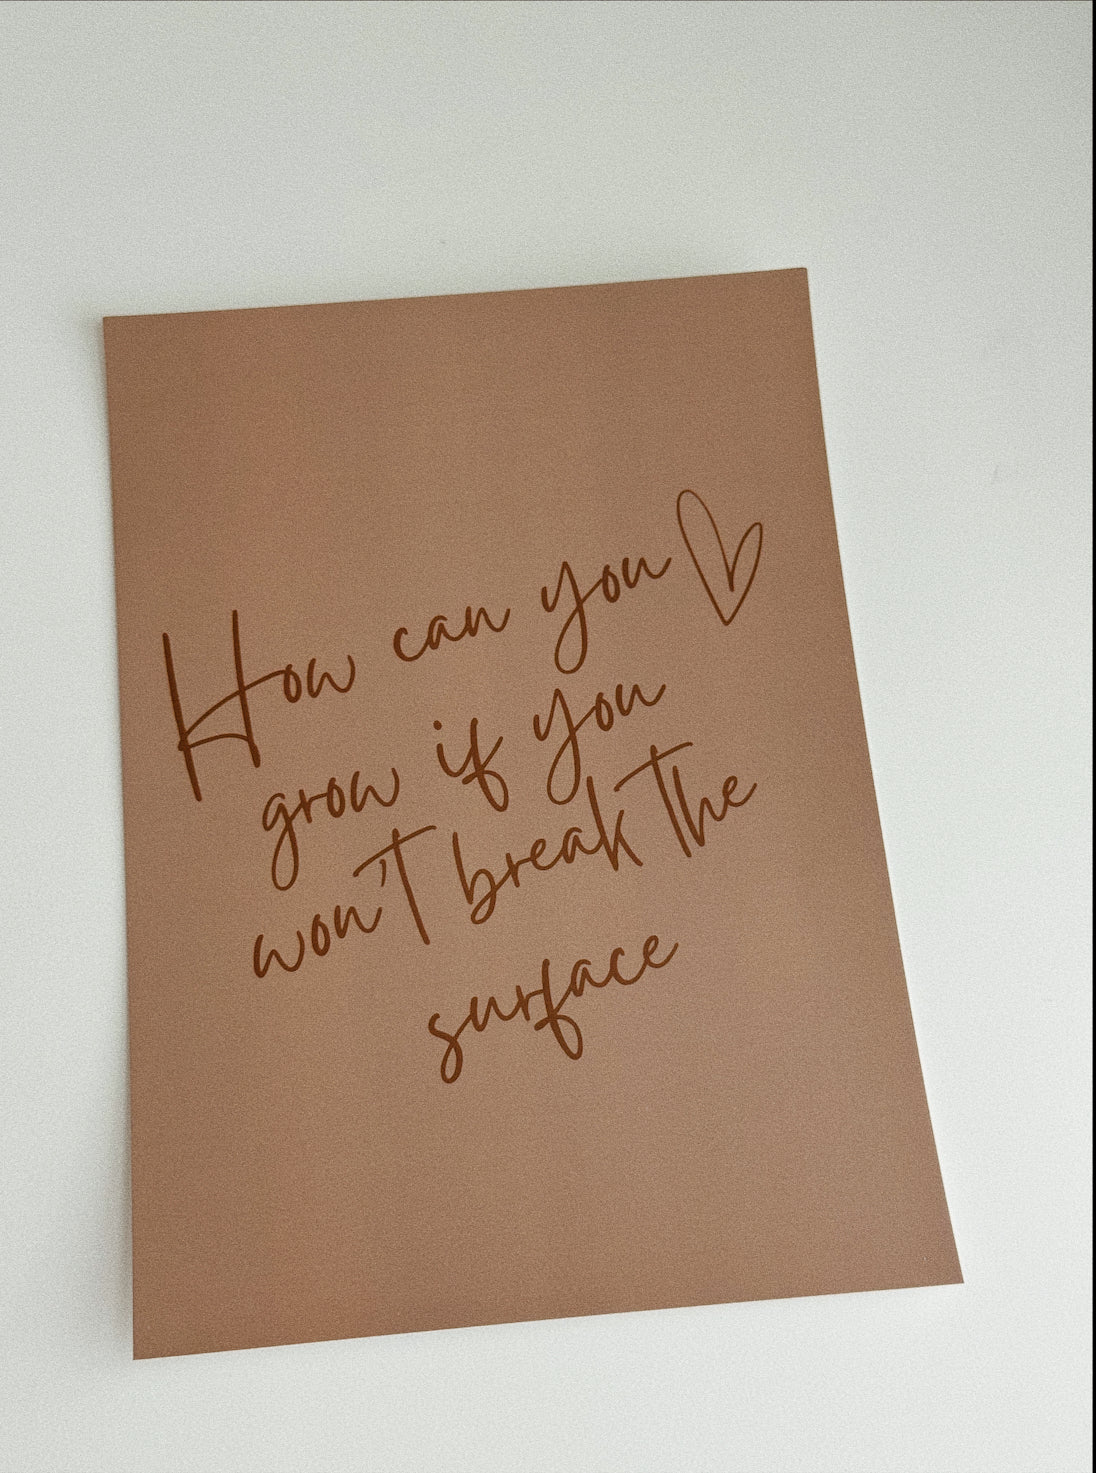 How can you
grow if you
won't break the
surface